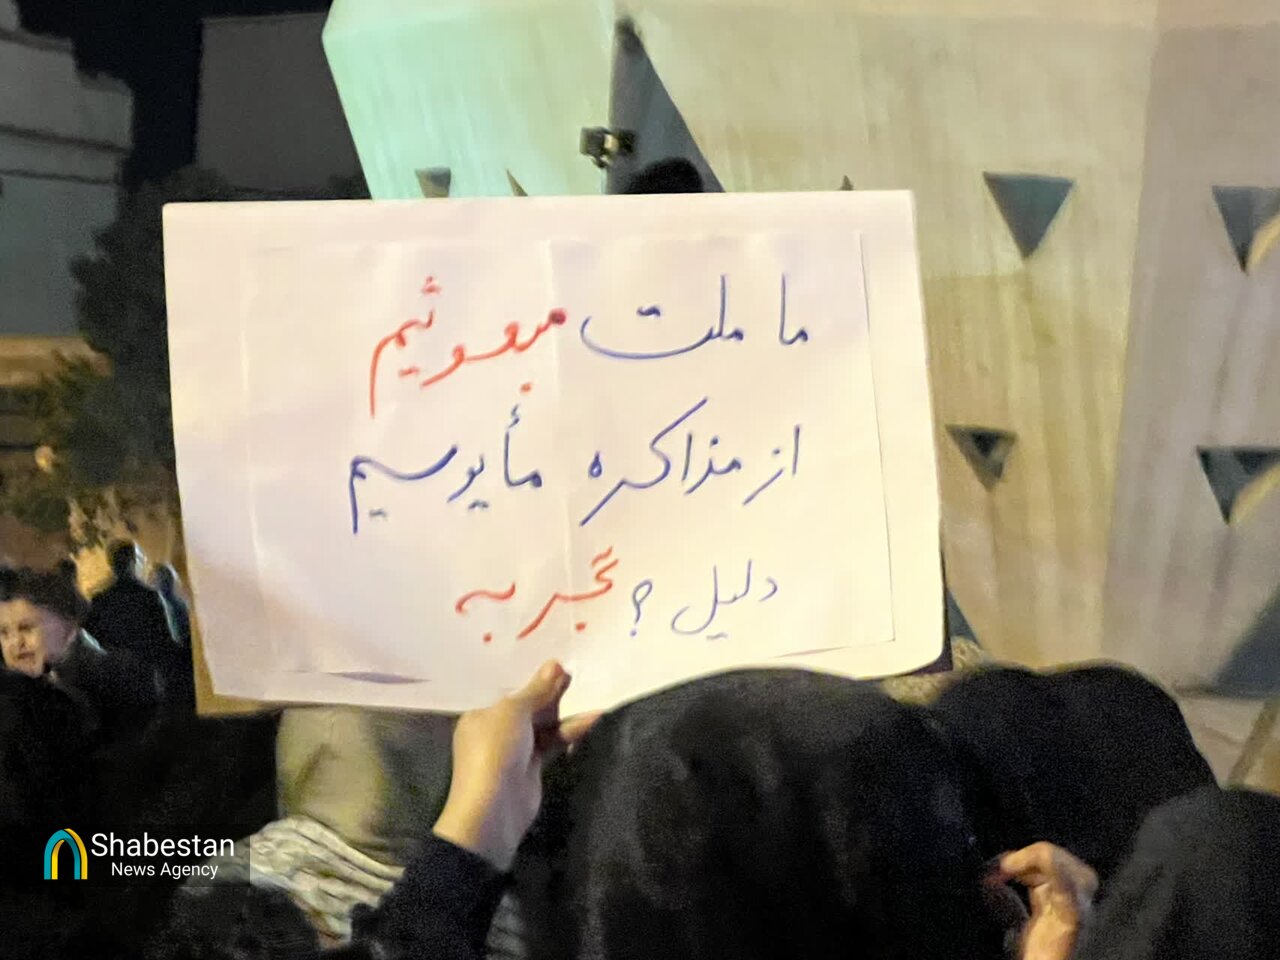 ما ملت مبعوثیم
از مذاکره مأیوسیم
دلیل؟ تجربه
Shabestan
News Agency